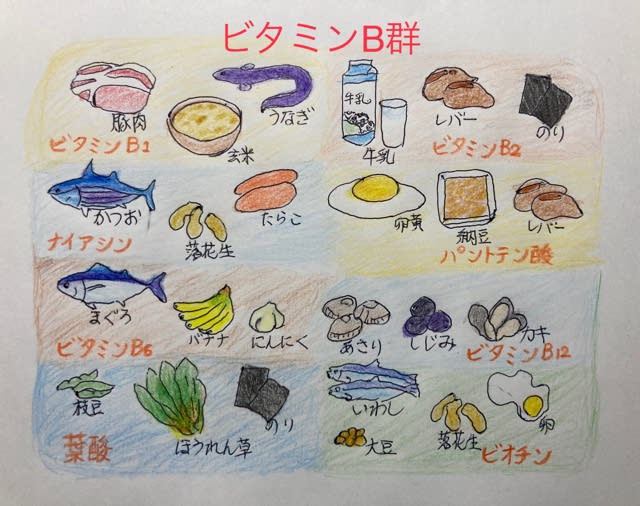 ビタミンB群
豚肉
玄米
うなぎ
ビタミンB1
牛乳
牛乳
レバー
のり
ビタミンB2
かつお
落花生
たらこ
ナイアシン
卵黄
納豆
レバー
パントテン酸
まぐろ
バナナ
にんにく
ビタミンB6
あさり
しじみ
カキ
ビタミンB12
枝豆
ほうれん草
のり
葉酸
いわし
大豆
落花生
卵
ビオチン